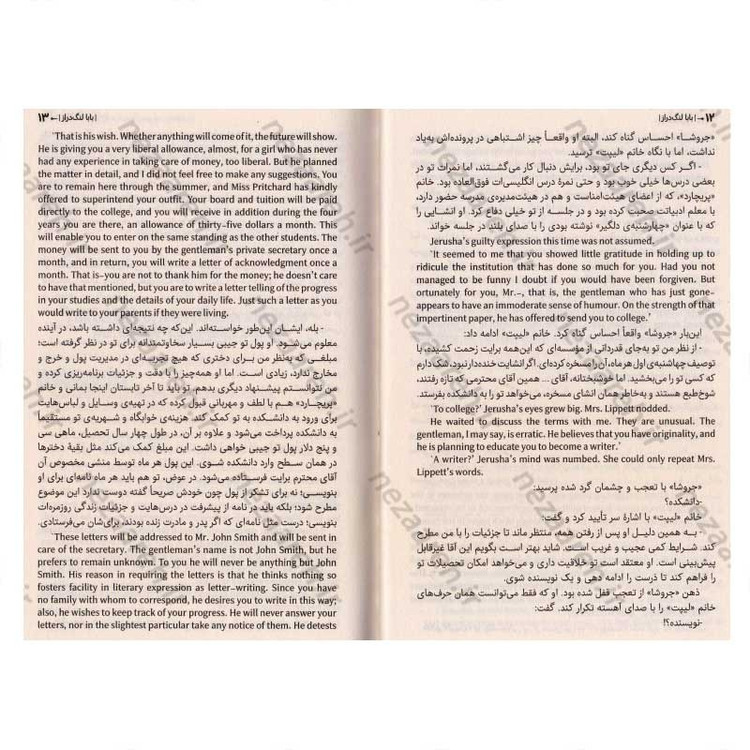 ۱۲ → | بابا لنگ‌دراز |
«جروشا» احساس گناه کند، البته او واقعاً چیز اشتباهی در پرونده‌اش به‌یاد
نداشت، اما با نگاه خانم «لیپت» ترسید.
- اگر کس دیگری جای تو بود، برایش دنبال کار می‌گشتند، اما نمرات تو در
بعضی درس‌ها خیلی خوب بود و حتی نمرهٔ درس انگلیسی‌ات فوق‌العاده بود. خانم
«پریچارد»، که از اعضای هیئت‌امناست و هم در هیئت‌مدیره‌ی مدرسه حضور دارد،
با معلم ادبیاتت صحبت کرده بود و در جلسه از تو خیلی دفاع کرد. او انشایی را
که با عنوان «چهارشنبه‌ی دلگیر» نوشته بودی را با صدای بلند در جلسه خواند.
Jerusha's guilty expression this time was not assumed.
`It seemed to me that you showed little gratitude in holding up to
ridicule the institution that has done so much for you. Had you not
managed to be funny I doubt if you would have been forgiven. But
ortunately for you, Mr.–, that is, the gentleman who has just gone–
appears to have an immoderate sense of humour. On the strength of that
impertinent paper, he has offered to send you to college.'
این‌بار «جروشا» واقعاً احساس گناه کرد. خانم «لیپت» ادامه داد:
- از نظر من تو به‌جای قدردانی از مؤسسه‌ای که این‌همه برایت زحمت کشیده، با
توصیف چهارشنبه‌ی اول هر ماه، آن را مسخره کرده‌ای. اگر انشایت خنده‌دار نبود، شک دارم
که کسی تو را می‌بخشید. اما خوشبختانه، آقای ... همین آقای محترمی که تازه رفتند،
شوخ‌طبع هستند و به‌خاطر همان انشای مسخره، می‌خواهد تو را به دانشکده بفرستد.
`To college?' Jerusha's eyes grew big. Mrs. Lippett nodded.
He waited to discuss the terms with me. They are unusual. The
gentleman, I may say, is erratic. He believes that you have originality, and
he is planning to educate you to become a writer.'
`A writer?' Jerusha's mind was numbed. She could only repeat Mrs.
Lippett's words.
«جروشا» با تعجب و چشمان گرد شده پرسید:
-دانشکده؟
خانم «لیپت» با اشارهٔ سر تأیید کرد و گفت:
- به همین دلیل او پس از رفتن همه، منتظر ماند تا جزئیات را با من مطرح
کند. شرایط کمی عجیب و غریب است. شاید بهتر است بگویم این آقا غیرقابل
پیش‌بینی است. او معتقد است تو خلاقیت داری و می‌خواهد امکان تحصیلات تو
را فراهم کند تا درست را ادامه دهی و یک نویسنده شوی.
ذهن «جروشا» از تعجب قفل شده بود. او که فقط می‌توانست همان حرف‌های
خانم «لیپت» را با صدای آهسته تکرار کند. گفت:
-نویسنده؟!
| بابا لنگ‌دراز | ← ۱۳
`That is his wish. Whether anything will come of it, the future will show.
He is giving you a very liberal allowance, almost, for a girl who has never
had any experience in taking care of money, too liberal. But he planned
the matter in detail, and I did not feel free to make any suggestions. You
are to remain here through the summer, and Miss Pritchard has kindly
offered to superintend your outfit. Your board and tuition will be paid
directly to the college, and you will receive in addition during the four
years you are there, an allowance of thirty-five dollars a month. This
will enable you to enter on the same standing as the other students. The
money will be sent to you by the gentleman's private secretary once a
month, and in return, you will write a letter of acknowledgment once a
month. That is–you are not to thank him for the money; he doesn't care
to have that mentioned, but you are to write a letter telling of the progress
in your studies and the details of your daily life. Just such a letter as you
would write to your parents if they were living.
- بله، ایشان این‌طور خواسته‌اند. این‌که چه نتیجه‌ای داشته باشد، در آینده
معلوم می‌شود. او پول تو جیبی بسیار سخاوتمندانه برای تو در نظر گرفته است؛
مبلغی که به‌نظر من برای دختری که هیچ تجربه‌ای در مدیریت پول و خرج و
مخارج ندارد، زیادی است. اما او همه‌چیز را با دقت و جزئیات برنامه‌ریزی کرده و
من نتوانستم پیشنهاد دیگری بدهم. تو باید تا آخر تابستان اینجا بمانی و خانم
«پریچارد» هم با لطف و مهربانی قبول کرده که در تهیه‌ی وسایل و لباس‌هایت
برای ورود به دانشکده به تو کمک کند. هزینه‌ی خوابگاه و شهریه‌ی تو مستقیماً
به دانشکده پرداخت می‌شود و علاوه بر آن، در طول چهار سال تحصیل، ماهی سی
و پنج دلار پول تو جیبی خواهی داشت. این مبلغ کمک می‌کند مثل بقیهٔ دخترها
در همان سطح وارد دانشکده شوی. این پول هر ماه توسط منشی مخصوص آن
آقای محترم برایت فرستاده می‌شود. در عوض، تو هم باید هر ماه نامه‌ای برای او
بنویسی؛ نه برای تشکر از پول چون خودش صریحاً گفته دوست ندارد این موضوع
مطرح شود؛ بلکه باید در نامه از پیشرفت در درس‌هایت و جزئیات زندگی روزمره‌ات
بنویسی؛ درست مثل نامه‌ای که اگر پدر و مادرت زنده بودند، برای‌شان می‌فرستادی.
`These letters will be addressed to Mr. John Smith and will be sent in
care of the secretary. The gentleman's name is not John Smith, but he
prefers to remain unknown. To you he will never be anything but John
Smith. His reason in requiring the letters is that he thinks nothing so
fosters facility in literary expression as letter-writing. Since you have
no family with whom to correspond, he desires you to write in this way;
also, he wishes to keep track of your progress. He will never answer your
letters, nor in the slightest particular take any notice of them. He detests